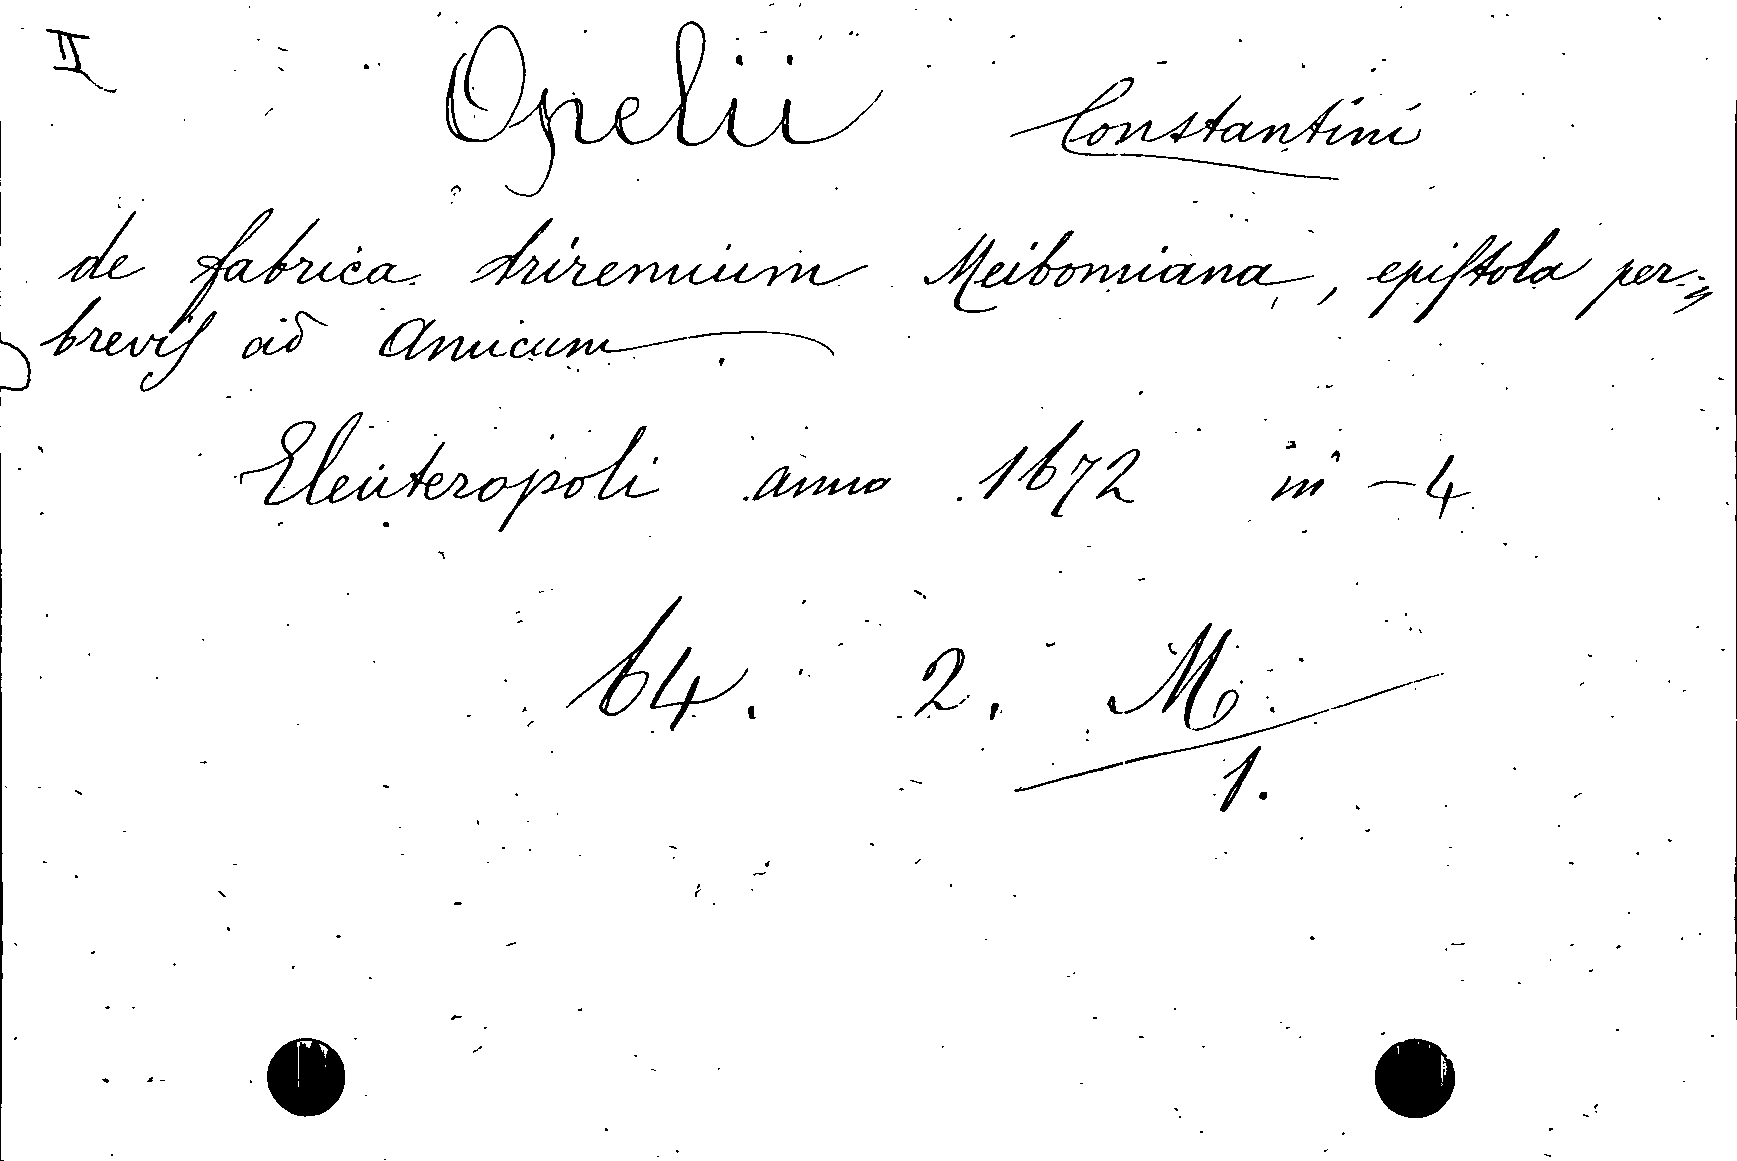 II
Opelii Constantini
de fabrica triremium Meibomiana, epistola per-
brevis ad Amicum
Eleuteropoli anno 1672 in -4
64. 2. M.
1.